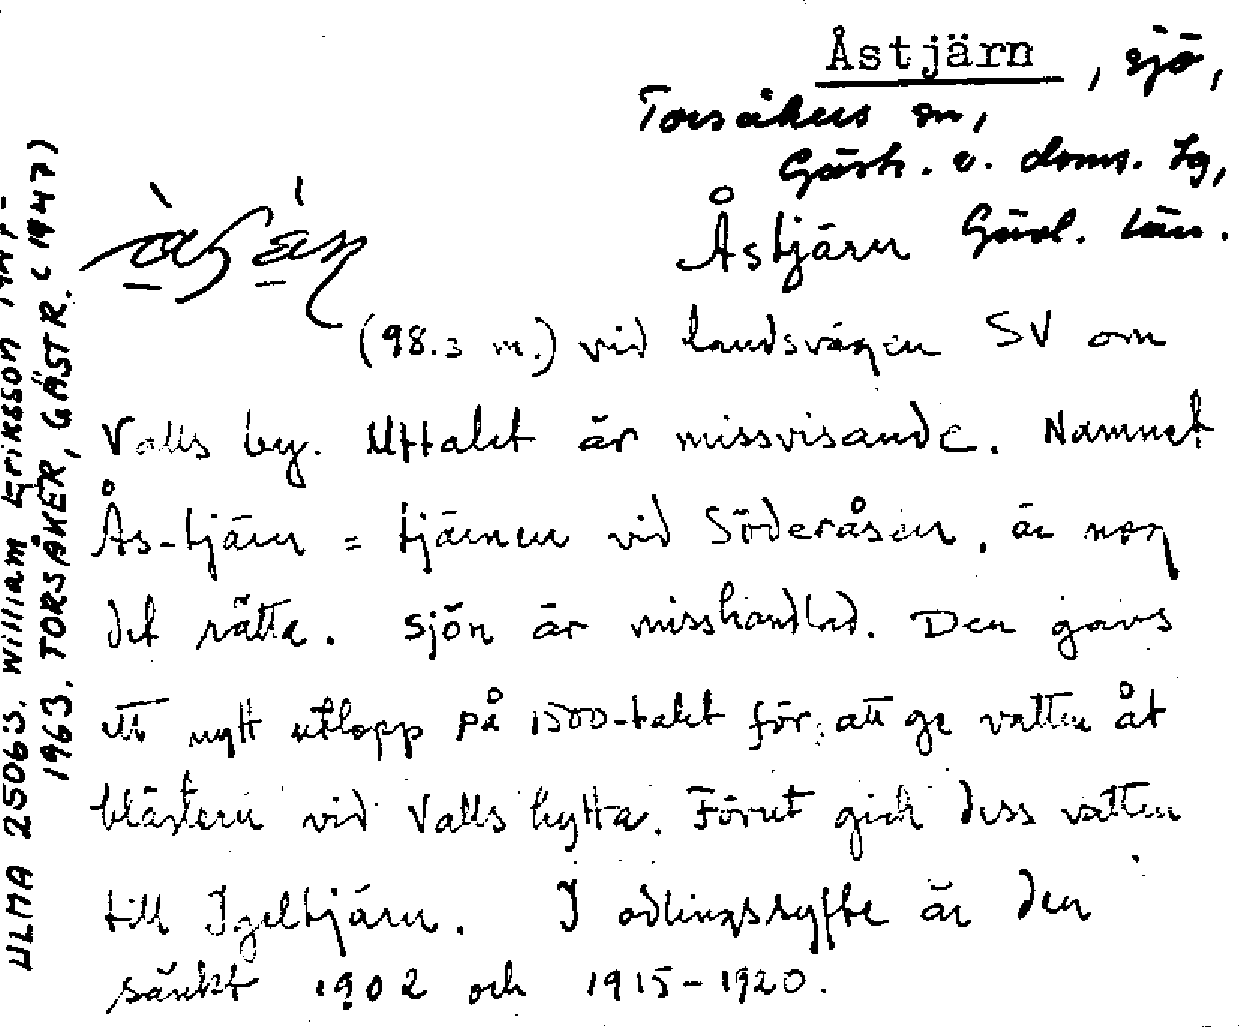 Åstjärn, sjö,
Torsåkers sn,
Gästr. v. doms. lg,
Gävl. län.
Åstjärn
(98.3 m.) vid landsvägen SV om
Valls by. Uttalet är missvisande. Namnet
Ås-tjärn = tjärnen vid Söderåsen, är nog
det rätta. Sjön är misshandlad. Den gavs
ett nytt utlopp på 1500-talet för att ge vatten åt
blästern vid Valls hytta. Förut gick dess vatten
till Igeltjärn. I odlingssyfte är den
sänkt 1902 och 1915-1920.
ULMA 25063. William Eriksson
1963. TORSÅKER, GÄSTR. (1947)